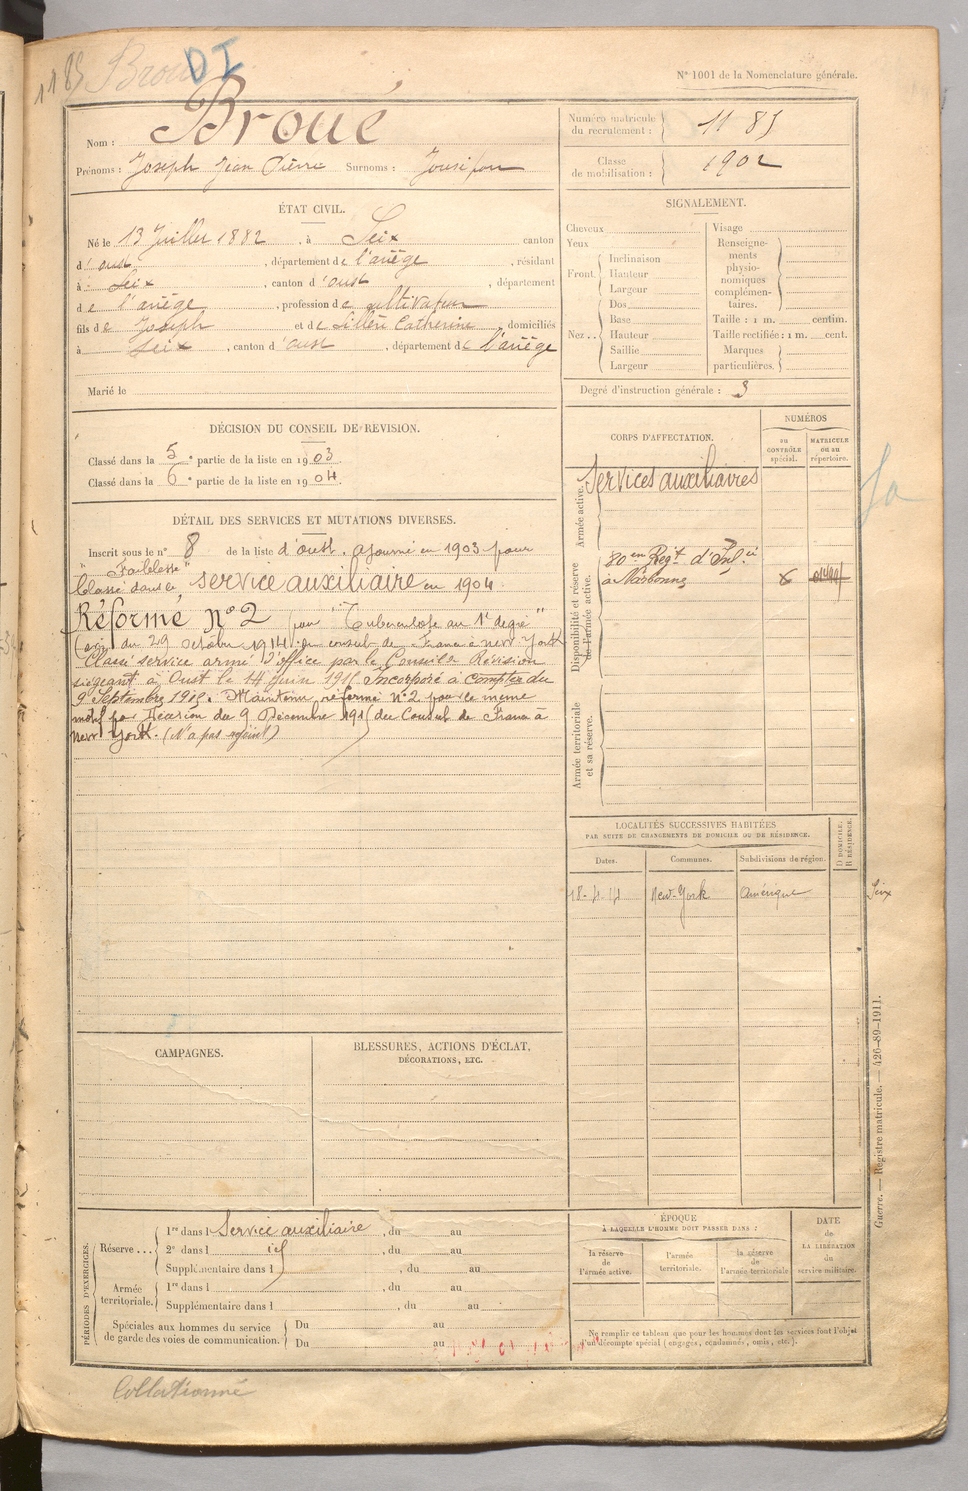 1185 Broué DI
N° 1001 de la Nomenclature générale.
Nom : Broué
Prénoms : Joseph Jean Pierre Surnoms :
Numéro matricule du recrutement : 1185
Classe de mobilisation : 1902
ÉTAT CIVIL.
Né le 13 Juillet 1882, à Seix canton
d'oust, département de l'ariège, résidant
à Seix, canton d'oust, département
de l'ariège, profession de cultivateur
fils de Joseph et de Catherine, domiciliés
à Seix, canton d'oust, département de l'ariège
Marié le
SIGNALEMENT.
Cheveux
Yeux
Front. Inclinaison
Hauteur
Largeur
Nez.. Dos
Base
Hauteur
Saillie
Largeur
Visage
Renseigne-
ments
physio-
nomiques
complémen-
taires.
Taille : 1 m. centim.
Taille rectifiée : 1 m. cent.
Marques
particulières.
Degré d'instruction générale : 3
DÉCISION DU CONSEIL DE REVISION.
Classé dans la 5e partie de la liste en 1903.
Classé dans la 6e partie de la liste en 1904.
DÉTAIL DES SERVICES ET MUTATIONS DIVERSES.
Inscrit sous le n° 8 de la liste d'oust. ajourné en 1903 pour
"Faiblesse"
Classé dans le service auxiliaire en 1904
Réformé N° 2 pour "Tuberculose au 1er degré"
(avis du 29 octobre 1914 du consul de France à New York
Classé service armé d'office par le Conseil de Révision
siégeant à Oust le 14 Juin 1915. Incorporé à compter du
9 Septembre 1915. Maintenu réformé n° 2 pour le même
motif par Décision du 9 Décembre 1915 du Consul de France à
New York. (N'a pas rejoint)
CORPS D'AFFECTATION.
NUMÉROS
au CONTRÔLE spécial.
MATRICULE ou au répertoire.
Armée active.
Services auxiliaires
Disponibilité et réserve de l'armée active.
80en Regt d'Infie
à Narbonne
Armée territoriale et sa réserve.
LOCALITÉS SUCCESSIVES HABITÉES
PAR SUITE DE CHANGEMENTS DE DOMICILE OU DE RÉSIDENCE.
Dates.
Communes.
Subdivisions de région.
D DOMICILE. R RÉSIDENCE.
New-York Amérique
Seix
CAMPAGNES.
BLESSURES, ACTIONS D'ÉCLAT,
DÉCORATIONS, ETC.
PÉRIODES D'EXERCICES.
Réserve... 1re dans l Service auxiliaire, du au
2e dans l id, du au
Supplémentaire dans l, du au
Armée territoriale. 1re dans l, du au
Supplémentaire dans l, du au
Spéciales aux hommes du service Du au
de garde des voies de communication. Du au
ÉPOQUE
À LAQUELLE L'HOMME DOIT PASSER DANS :
la réserve de l'armée active.
l'armée territoriale.
la réserve de l'armée territoriale
DATE
de
LA LIBÉRATION
du
service militaire.
Ne remplir ce tableau que pour les hommes dont les services font l'objet
d'un décompte spécial (engagés, condamnés, omis, etc.).
Guerre. — Registre matricule. — 426-89-1911.
Collationné